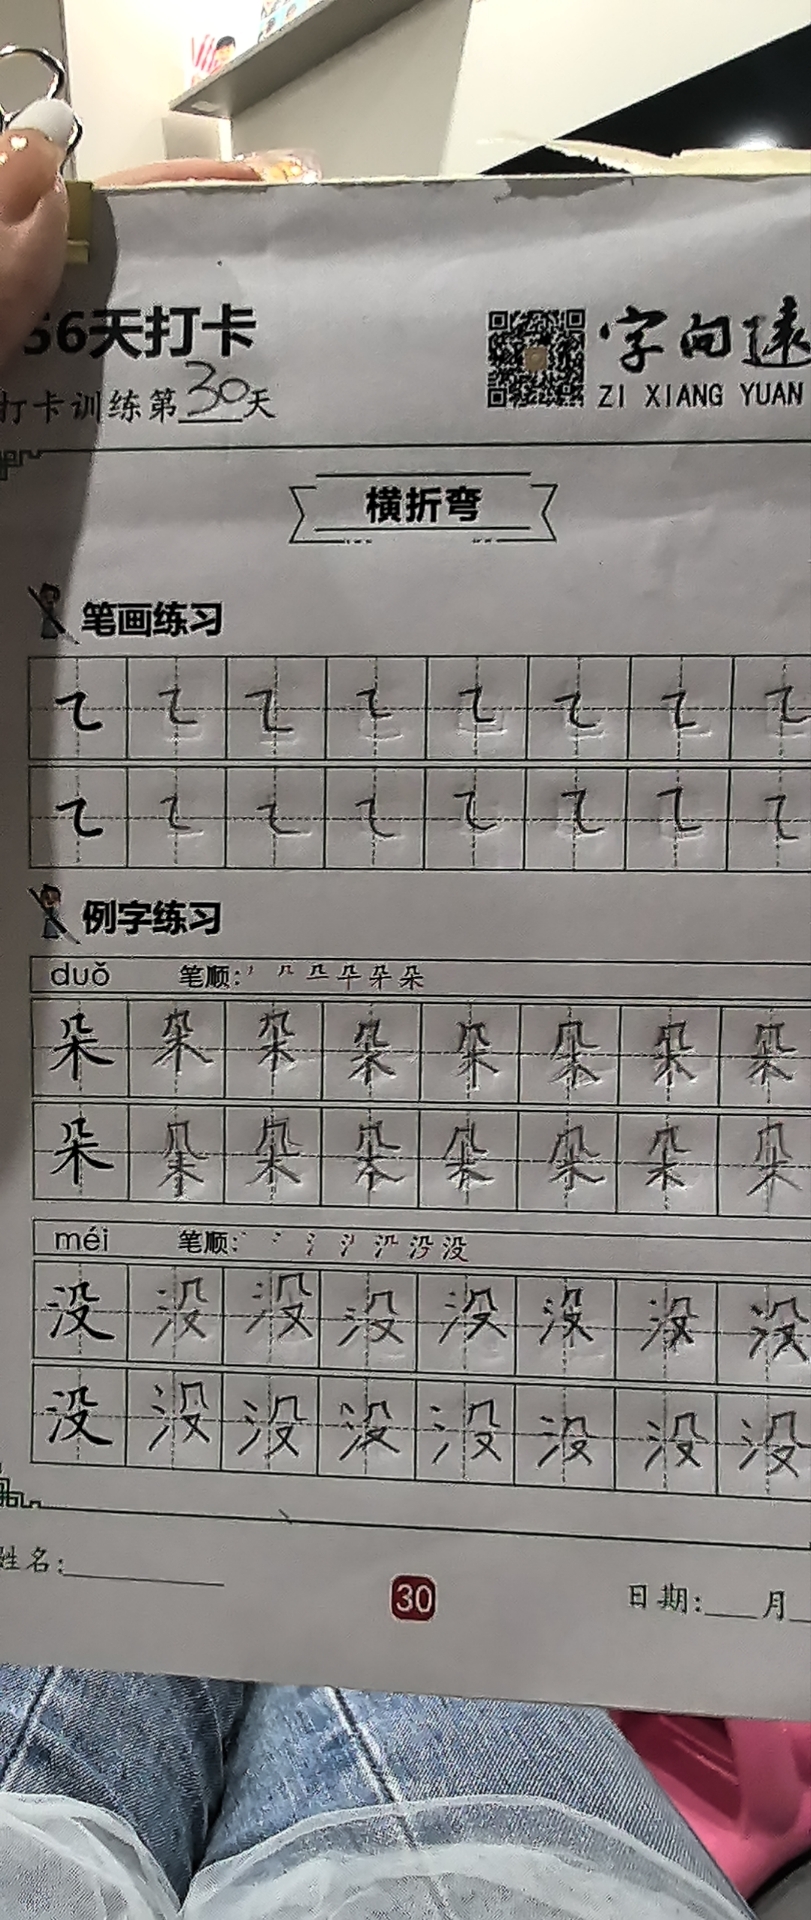 56天打卡
字向远
ZI XIANG YUAN
打卡训练第30天
横折弯
笔画练习
㇍ ㇍ ㇍ ㇍ ㇍ ㇍ ㇍ ㇍
㇍ ㇍ ㇍ ㇍ ㇍ ㇍ ㇍ ㇍
例字练习
duǒ 笔顺:
朵 朵 朵 朵 朵 朵 朵 朵
朵 朵 朵 朵 朵 朵 朵 朵
méi 笔顺:
没 没 没 没 没 没 没 没
没 没 没 没 没 没 没 没
姓名:
30
日期: 月